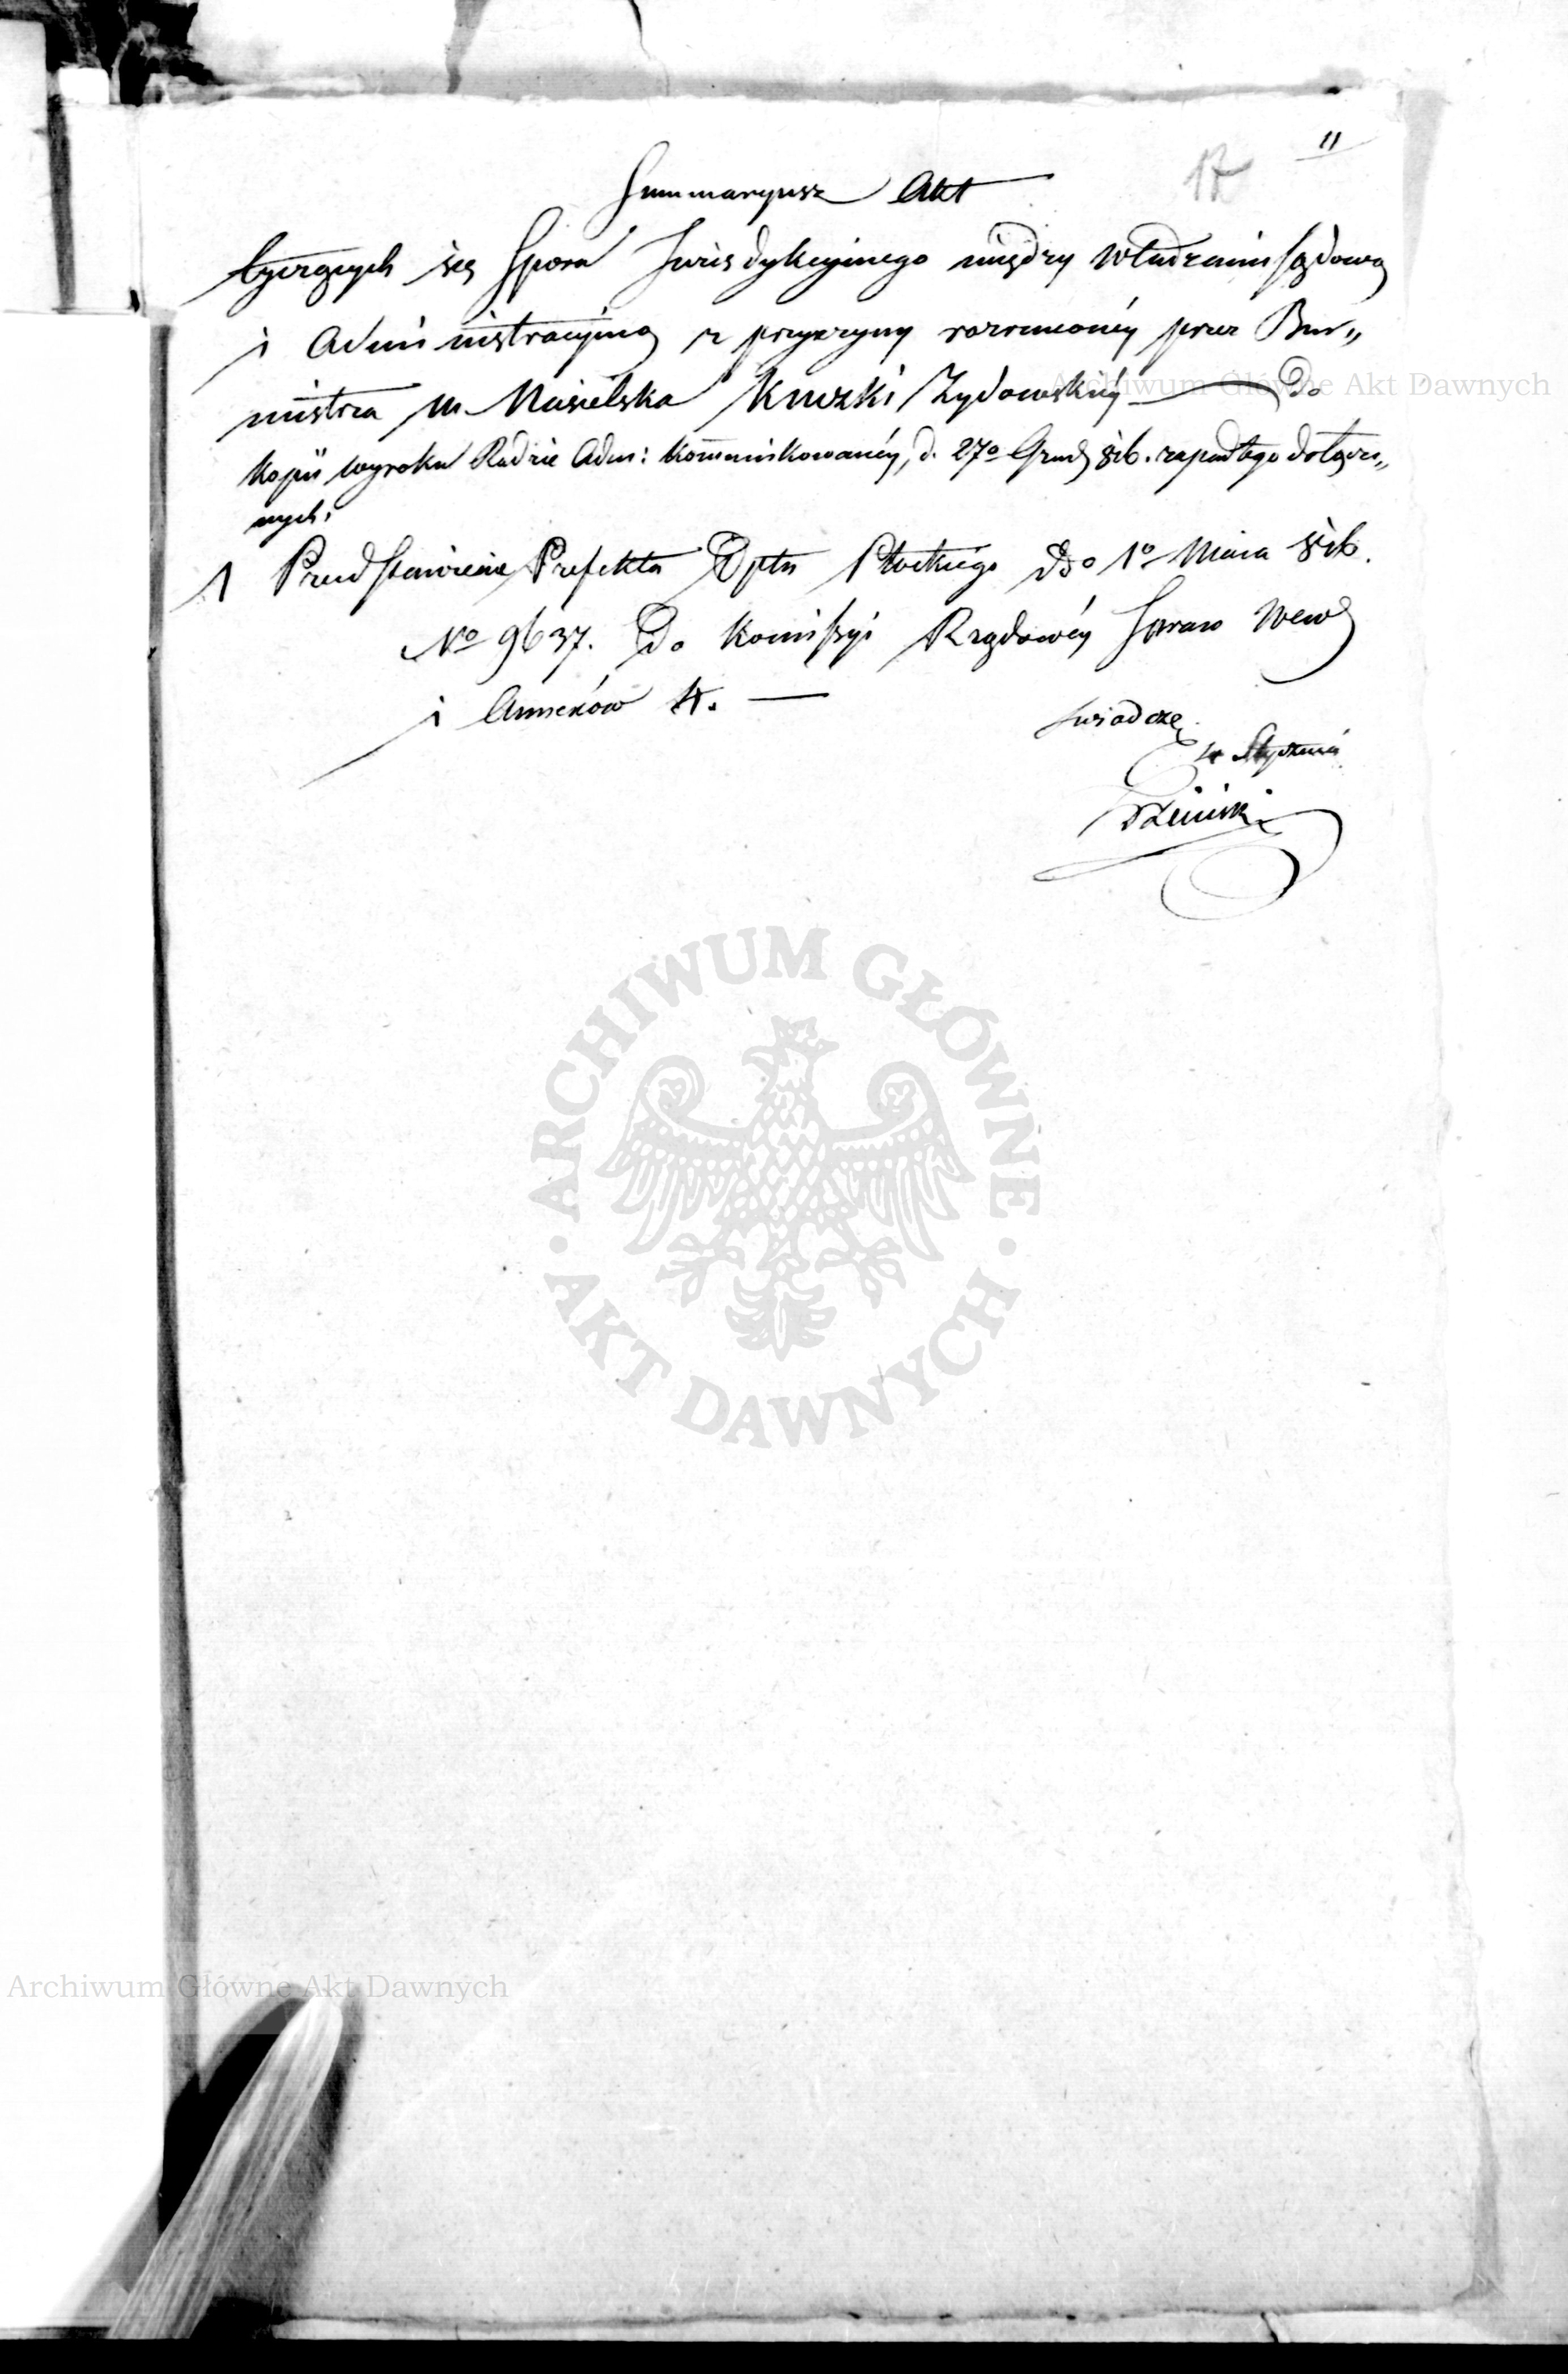 11
17
Summaryusz Akt
tyczących się Sporu Jurisdykcyinego między Władzami Sądową
i Administracyiną z przyczyny rozrzuconéy przez Bur„
mistrza m. Nasielska Kuczki Żydowskiéy — Do
kopii wyroku Radzie Adm: kom̄unikowanéy, d. 27º Grud. 816. zapadłego dołączo„
nych.
1 Przedstawienie Prefekta Dptu Płockiego ddo 1º Maia 816.
Nº 9637. Do Komissyi Rządowéy Spraw Wew
i Annexów 4. —
Swiadczę
4 Stycznia
Archiwum Główne Akt Dawnych
ARCHIWUM GŁÓWNE
AKT DAWNYCH
Archiwum Główne Akt Dawnych